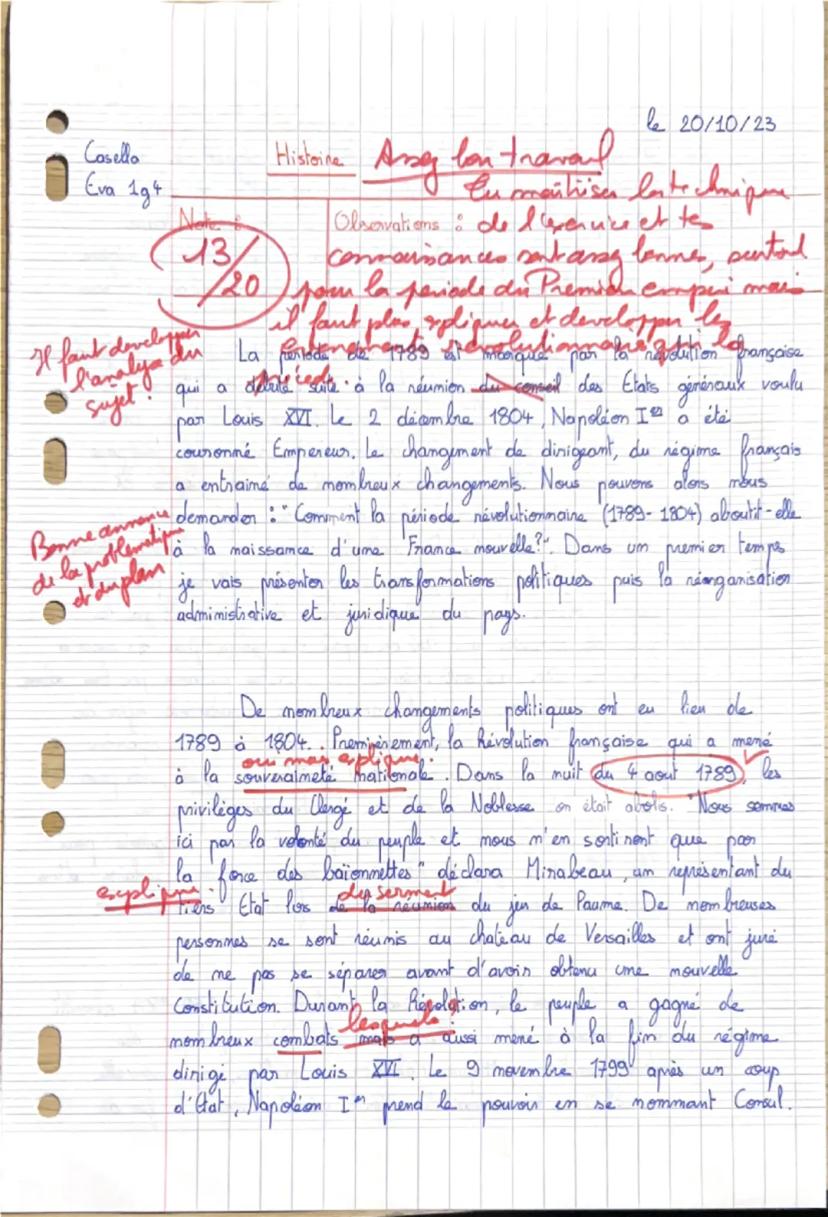 le 20/10/23
Casella
Eva 1g4
Histoire
Assez bon travail
Tu maîtrises la technique
Note :
13/20
Observations : de l'exercice et tes
connaissances sont assez bonnes, surtout
pour la période du Premier empire mais
il faut plus expliquer et développer les
évènements révolutionnaires qui la
précède.
Il faut développer
l'analyse du
sujet.
La période de 1789 est marqué par la révolution française
qui a débuté suite à la réunion du conseil des Etats généraux voulu
par Louis XVI. Le 2 décembre 1804, Napoléon Ier a été
couronné Empereur. Le changement de dirigeant, du régime français
a entrainé de nombreux changements. Nous pouvons alors nous
Bonne annonce
de la problématique
et du plan
demander : " Comment la période révolutionnaire (1789-1804) aboutit-elle
à la naissance d'une France nouvelle?". Dans un premier temps
je vais présenter les transformations politiques puis la réorganisation
administrative et juridique du pays.
De nombreux changements politiques ont eu lieu de
1789 à 1804. Premièrement, la Révolution française qui a mené
oui mais explique
à la souveraineté nationale. Dans la nuit du 4 aout 1789, les
privilèges du Clergé et de la Noblesse on était abolis. "Nous sommes
ici par la volonté du peuple et nous n'en sortiront que par
la force des baïonnettes" déclara Mirabeau, un représentant du
explique.
du serment
tiers Etat lors de la réunion du jeu de Paume. De nombreuses
personnes se sont réunis au chateau de Versailles et ont juré
de ne pas se séparer avant d'avoir obtenu une nouvelle
Constitution. Durant la Révolution, le peuple a gagné de
lesquels ?
nombreux combats mais a aussi mené à la fin du régime
dirigé par Louis XVI. Le 9 novembre 1799 après un coup
d'État, Napoléon Ier prend le pouvoir en se nommant Consul.